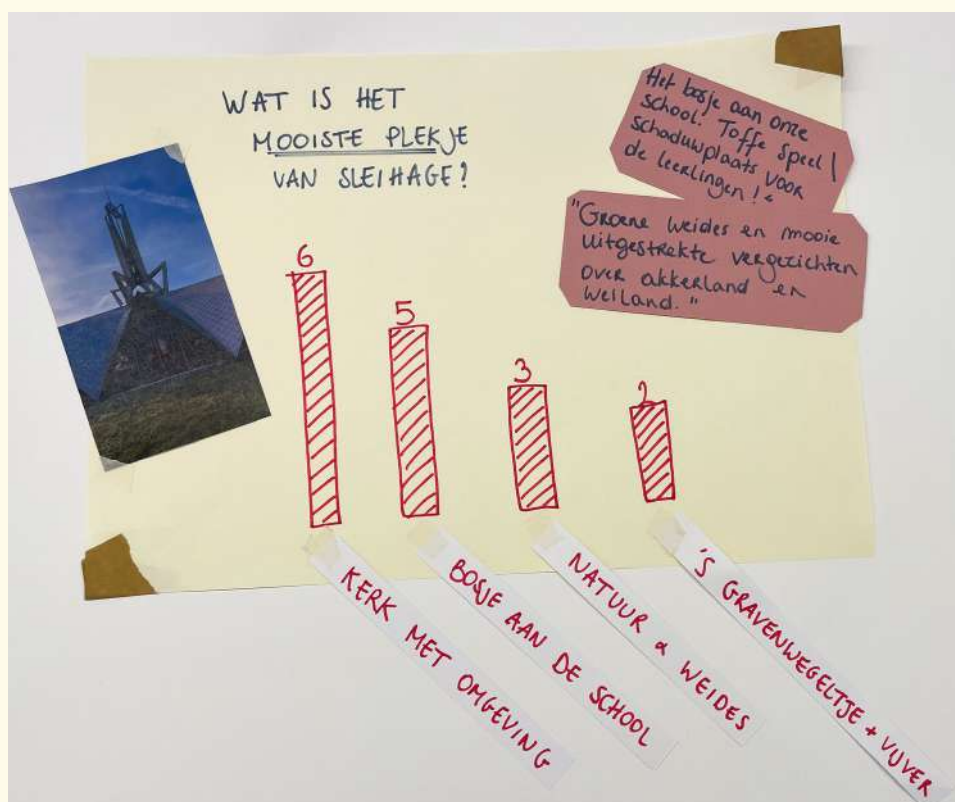 WAT IS HET
MOOISTE PLEKJE
VAN SLEIHAGE?
Het bosje aan onze
school. Toffe speel/
schaduwplaats voor
de leerlingen!"
"Groene weides en mooie
uitgestrekte vergezichten
over akkerland en
weiland."
6
5
3
2
KERK MET OMGEVING
BOSJE AAN DE SCHOOL
NATUUR & WEIDES
'S GRAVENWEGELTJE + VIJVER